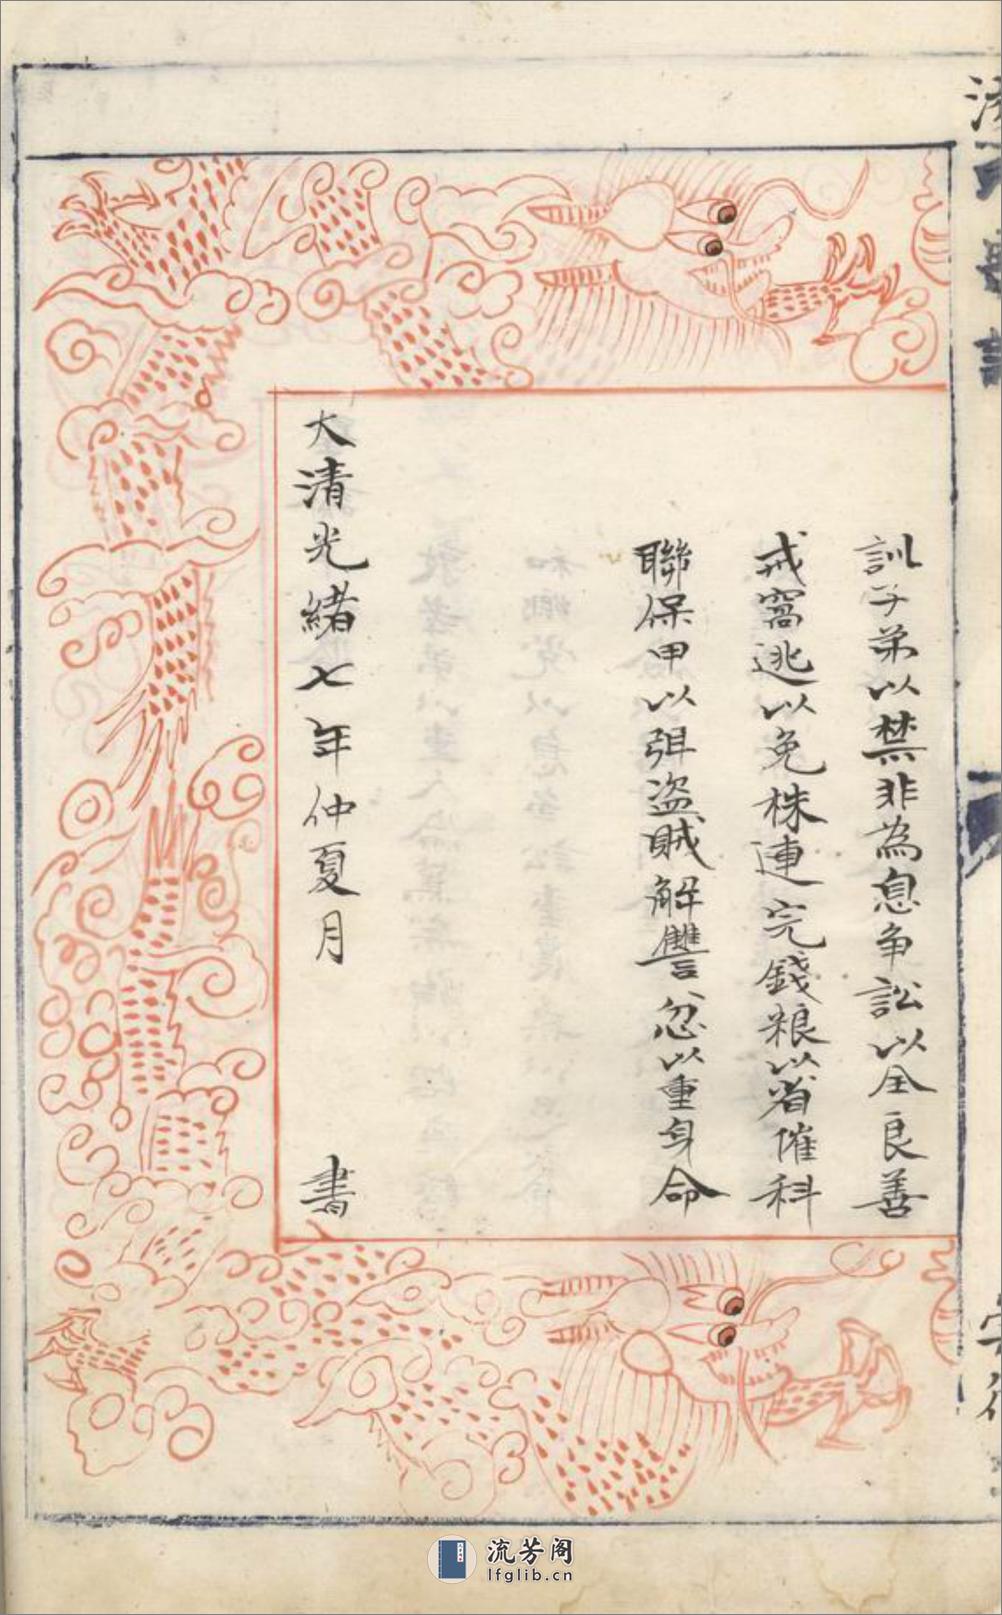 訓子弟以禁非為息争訟以全良善
戒窩逃以免株連完錢粮以省催科
聯保甲以弭盗賊解讐忿以重身命
大清光緒七年仲夏月 書
流芳阁
lfglib.cn